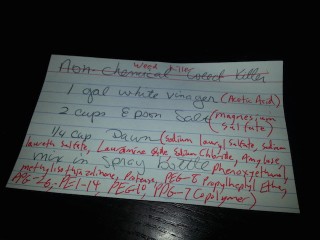 Weed Killer
Non-Chemical Weed Killer
1 gal white vinegar (Acetic Acid)
2 cups Epsom Salt (magnesium
sulfate)
1/4 cup Dawn (sodium lauryl sulfate, sodium
laureth sulfate, Lauramine oxide, Sodium Chloride, Amylase
mix in Spray Bottle Phenoxyethanol,
methylisothiazolinone, Protease, PEG-8 Propylheptyl Ether,
PPG-26, PEI-14 PEG-10, PPG-7 Copolymer)